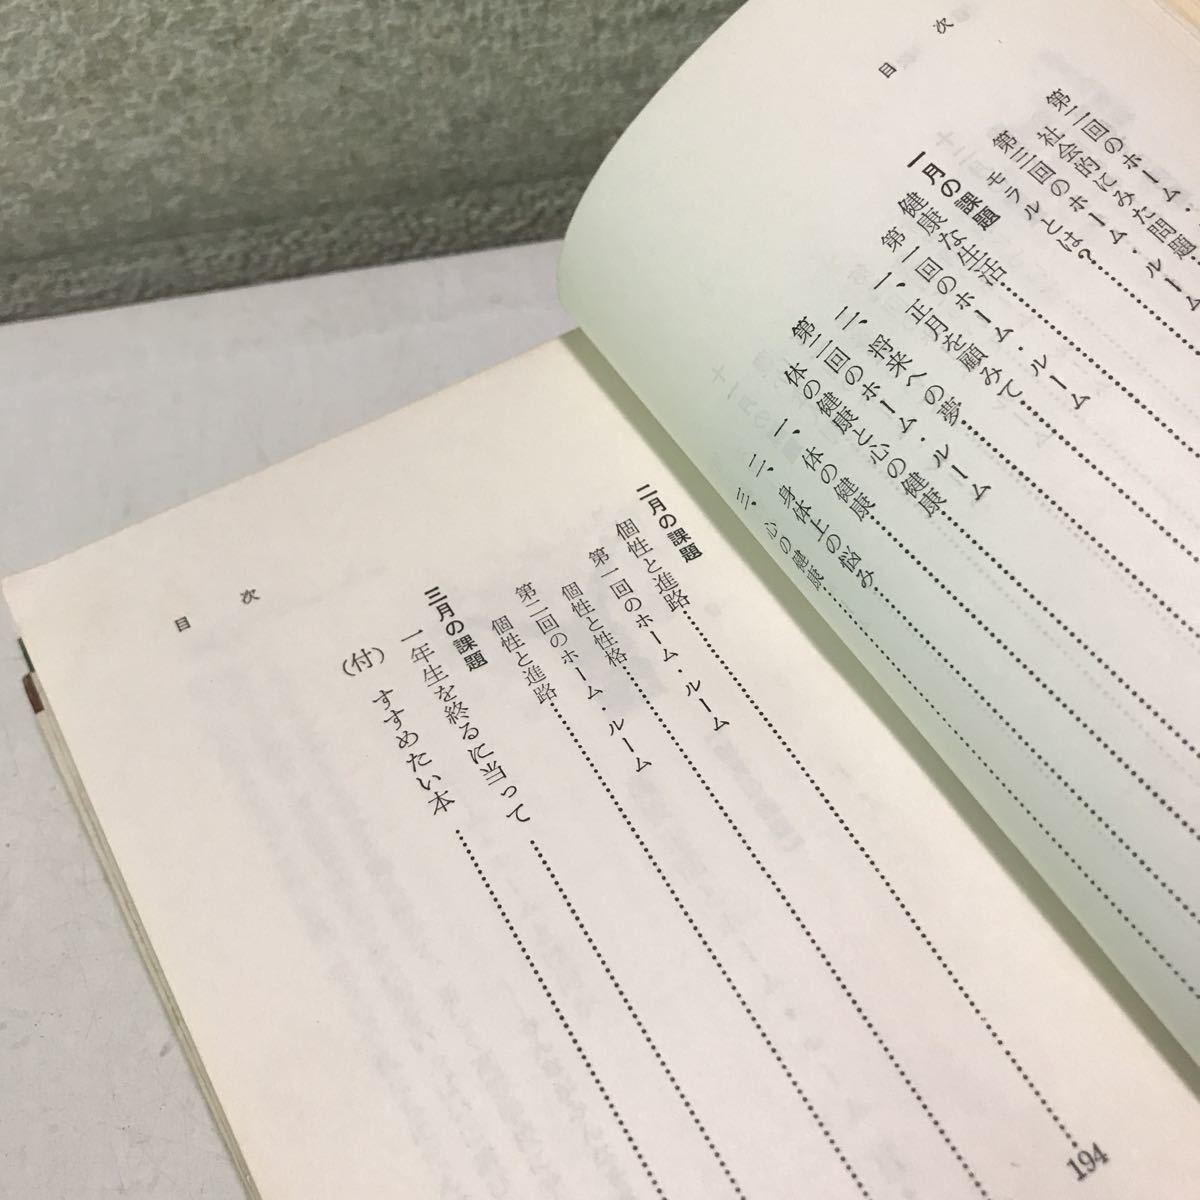 目次
第二回のホーム・
社会的にみた問題
第三回のホーム・ルーム
モラルとは？
一月の課題
健康な生活
第一回のホーム・ルーム
一、正月を顧みて
二、将来への夢
第二回のホーム・ルーム
体の健康と心の健康
一、体の健康
二、身体上の悩み
三、心の健康
目次
二月の課題
個性と進路
194
第一回のホーム・ルーム
個性と性格
第二回のホーム・ルーム
個性と進路
三月の課題
一年生を終るに当って
（付）すすめたい本